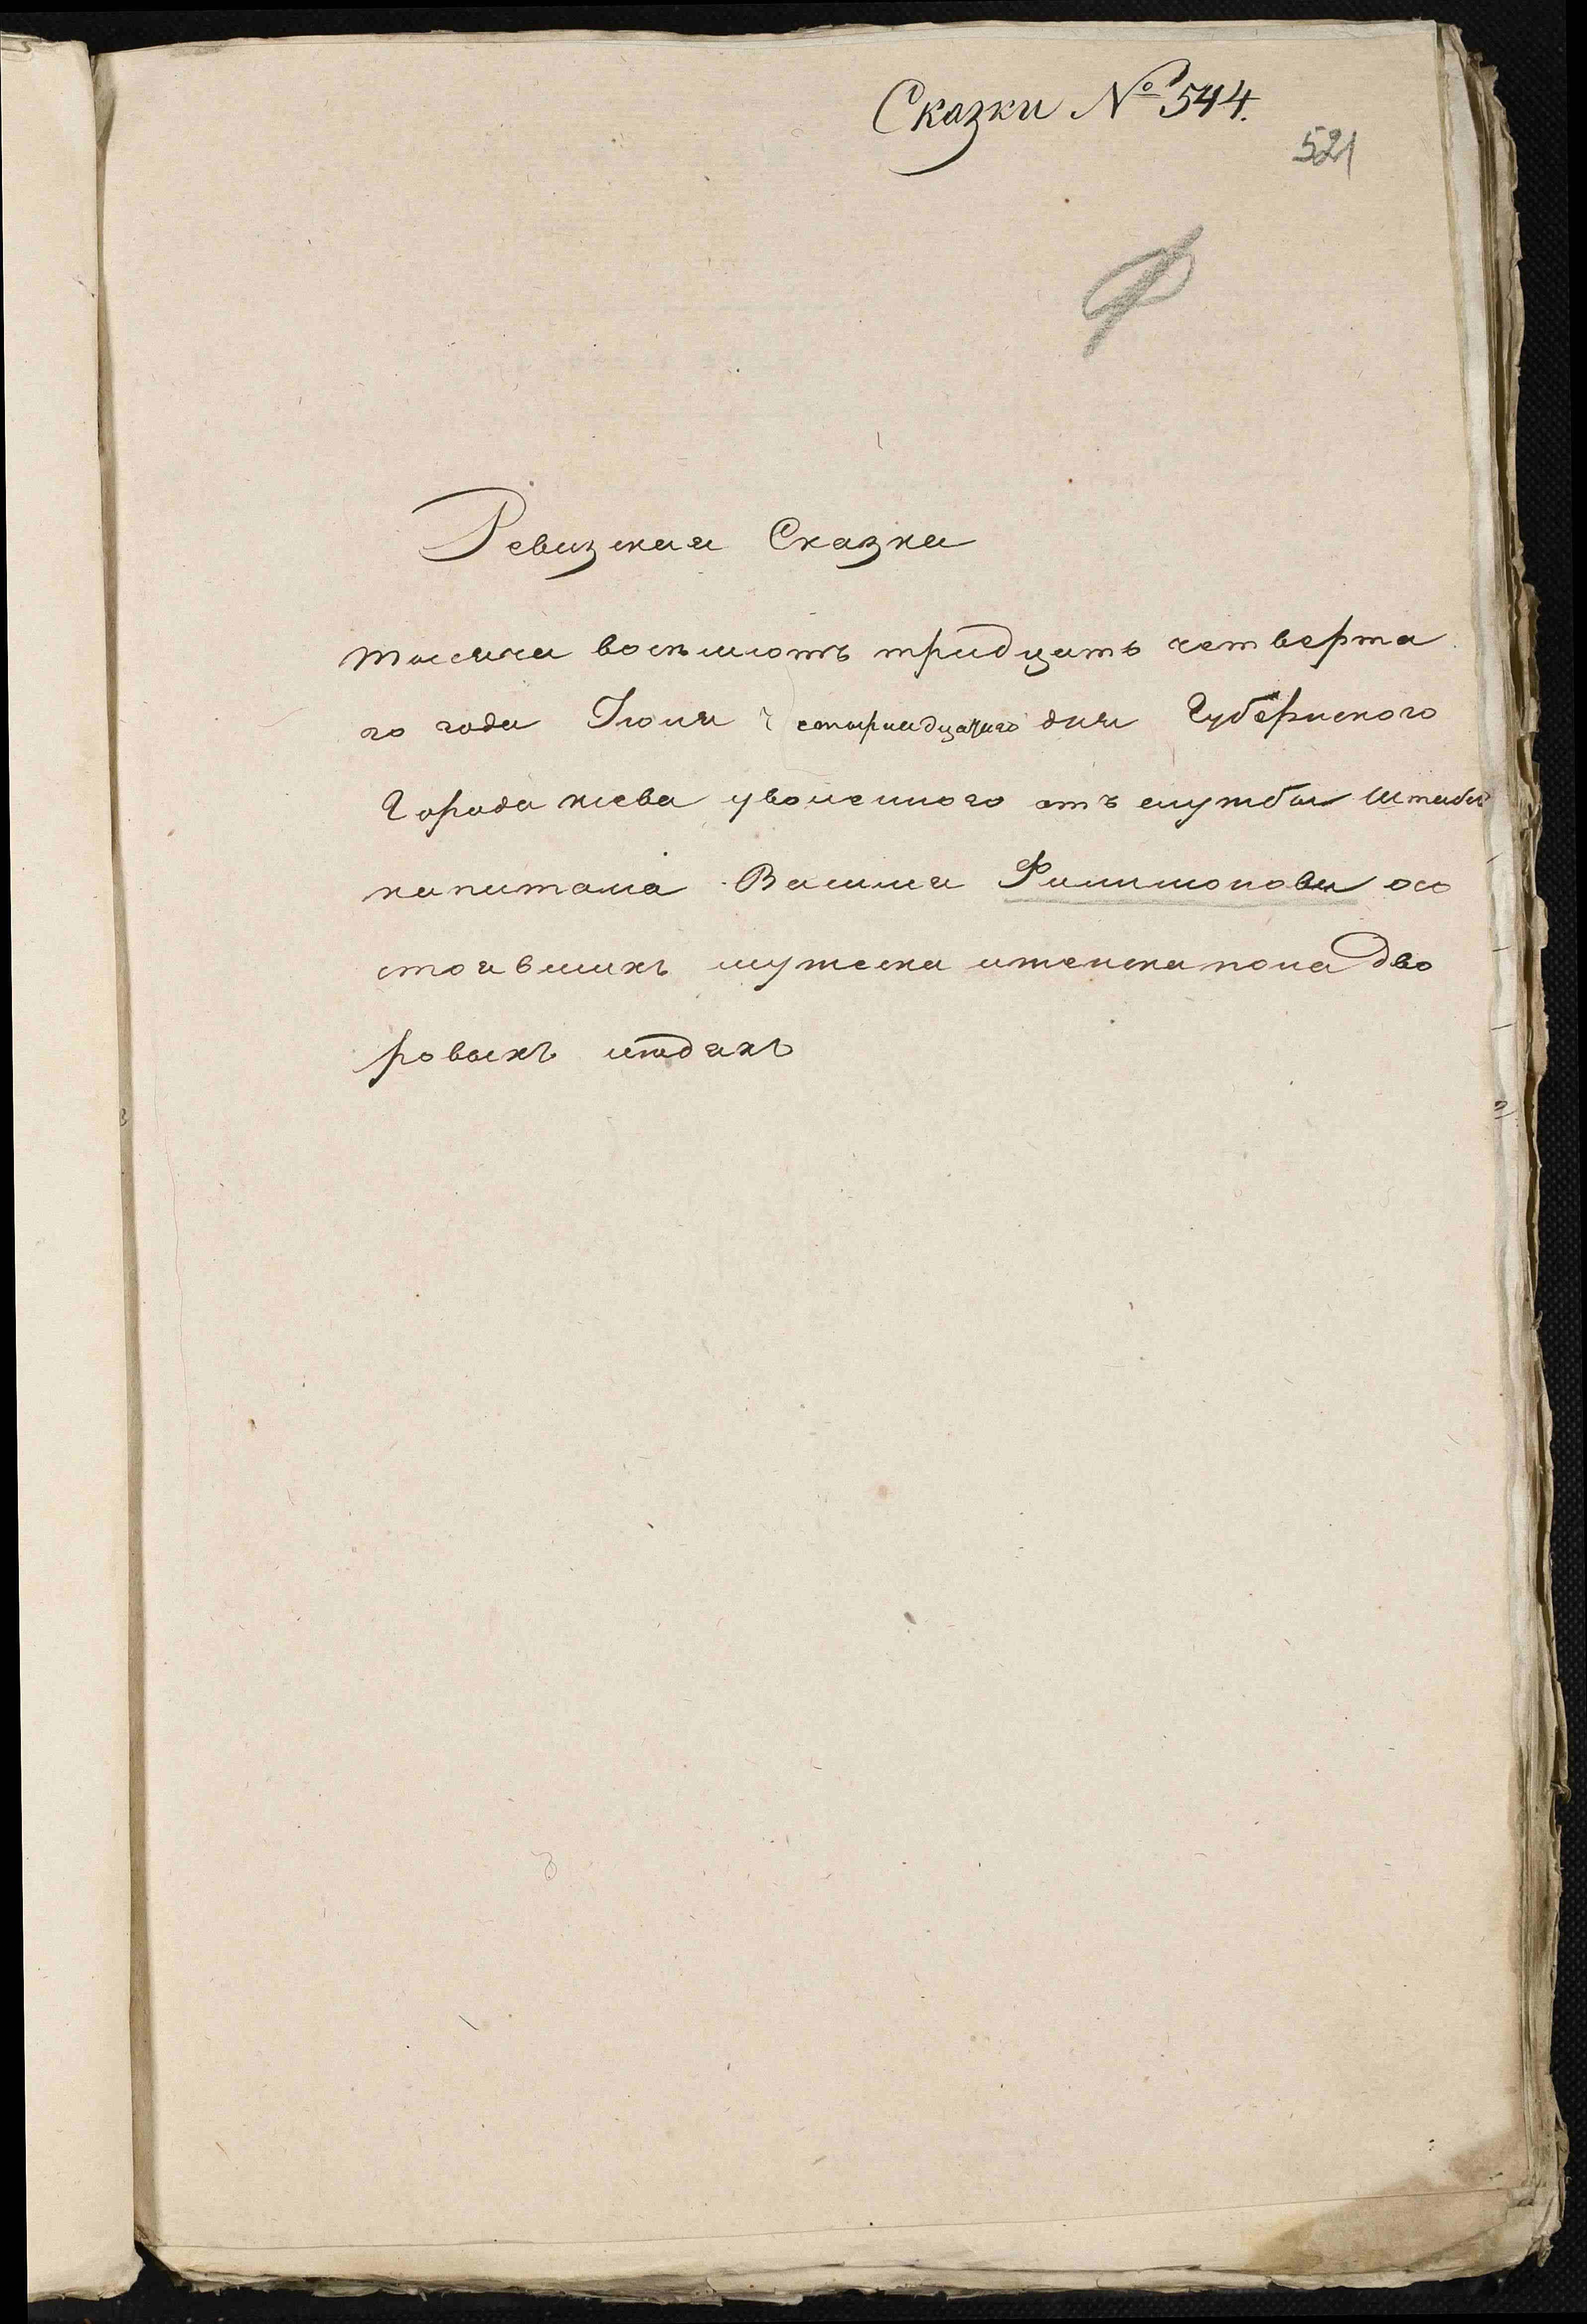 Сказки № 544.
521
Ф
Ревизская Сказка
тысяча восемьсотъ тридцать четверта
го года Июня четырнадцатаго дня Губернского
Города киева уволенного отъ службы Штабсъ
капитана Василия Филимонова осо
стоявшихъ мужеска иженска пола дво
ровыхъ людяхъ